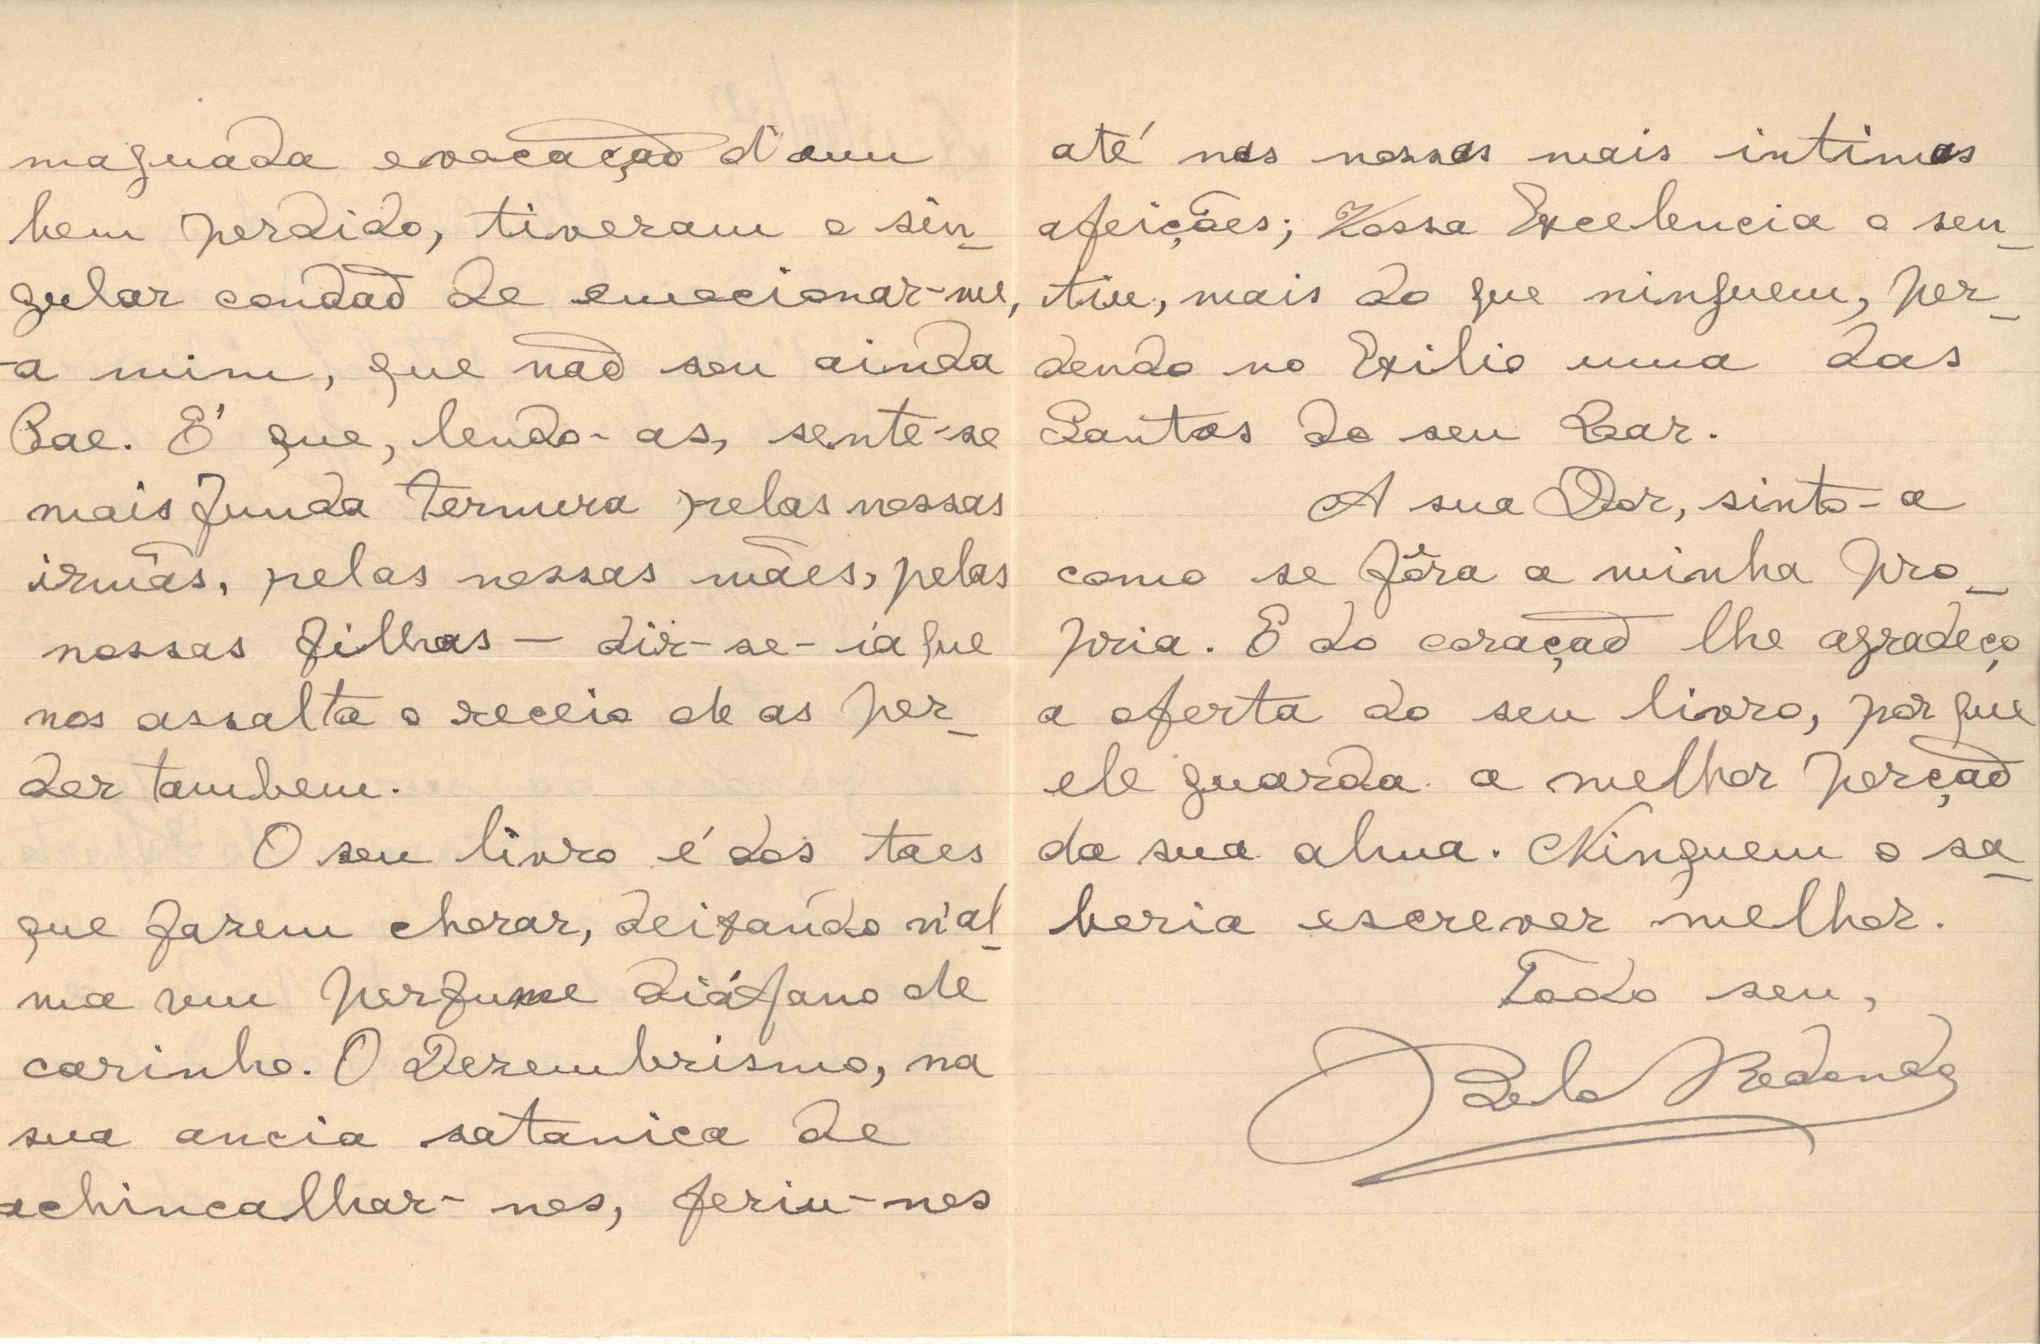 maguada evocação d'um
bem perdido, tiveram o sin-
gular condão de emocionar-me,
-a mim, que não sou ainda
Pae. É que, lendo-as, sente-se
mais funda ternura pelas nossas
irmãs, pelas nossas mães, pelas
nossas filhas — dir-se-ia que
nos assalta o receio de as per-
der tambem.
O seu livro é dos taes
que fazem chorar, deixando n'al-
ma um perfume diáfano de
carinho. O Dezembrismo, na
sua ancia satanica de
achincalhar-nos, feriu-nos
até nas nossas mais intimas
afeições; Vossa Excelencia o sen-
tiu, mais do que ninguem, per-
dendo no Exilio uma das
Santas do seu Lar.
A sua Dor, sinto-a
como se fôra a minha pro-
pria. E do coração lhe agradeço
a oferta do seu livro, porque
ele guarda a melhor porção
da sua alma. Ninguem o sa-
beria escrever melhor.
Todo seu,
Belo Redondo